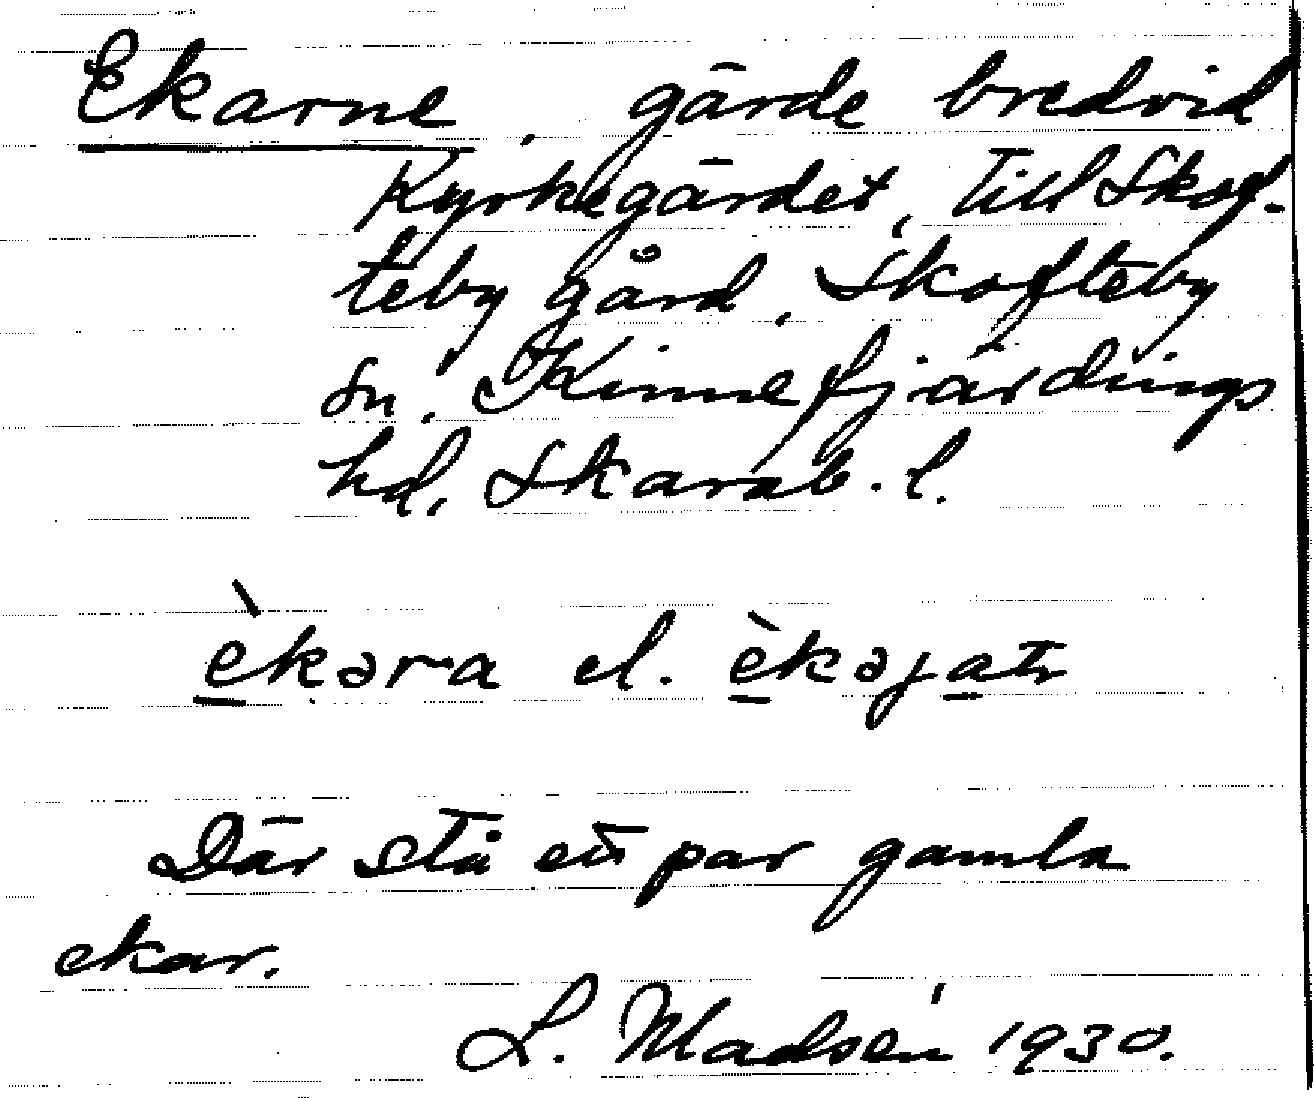 Ekarne, gärde bredvid
Kyrkegärdet, till Skof-
teby gård, Skofteby
sn, Kinnefjärdings
hd, Skarab. l.
èkəra el. èkəjatṛ
Där stå ett par gamla
ekar.
L. Madsén 1930.